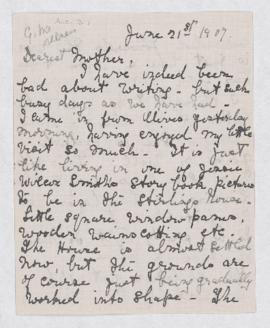 June 21st 1907.
Dearest Mother,
I have indeed been
bad about writing - but such
busy days as we have had.
I came in from yesterday
morning, having enjoyed my little
visit so much. It is just
like living in one of Jessie
Wilcox Smiths story book pictures
to be in the Stirling House.
Little square window panes,
wooden wainscotting, etc.
The House is almost settled
now, but the grounds are
of course just being gradually
worked into shape - The